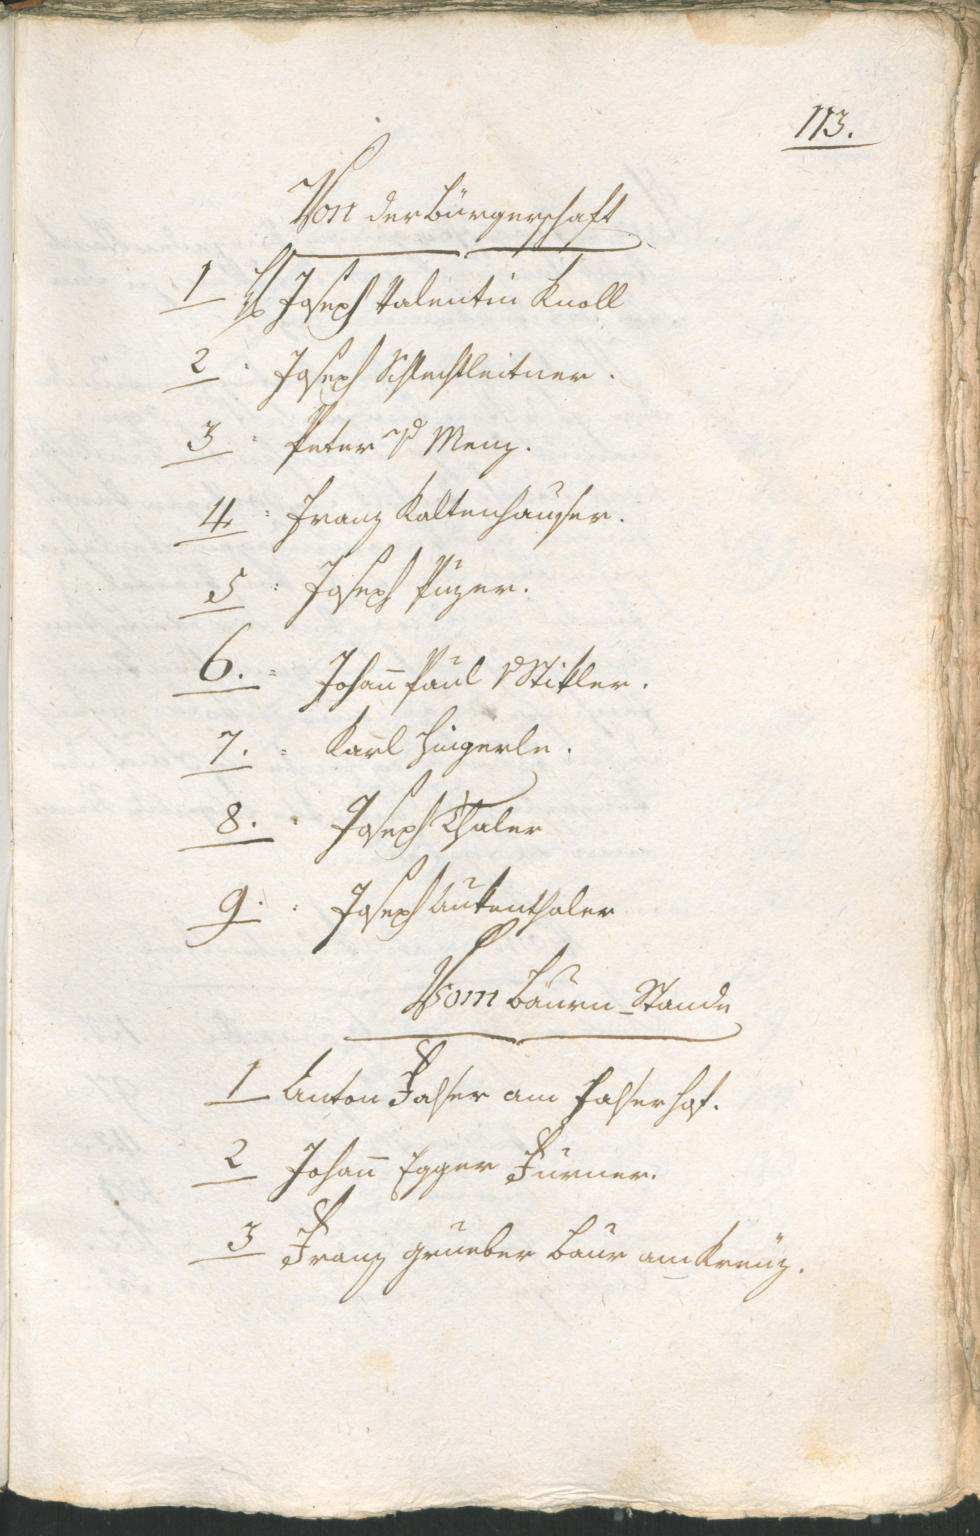 113.
Von der Bürgerschaft
1 H Joseph Valentin Knoll
2 : Joseph Schlechtleitner.
3 : Peter v Menz.
4 : Franz Kaltenhauser.
5 : Joseph Puzer.
6. : Johann Paul Stikler.
7. : Karl Hingerle.
8. : Joseph Thaler
9. : Joseph Aukenthaler
Vom Bauern Stande
1 Anton Falser am Falserhof.
2 Johann Egger Furner.
3 Franz Grueber Baur am Kreuz.